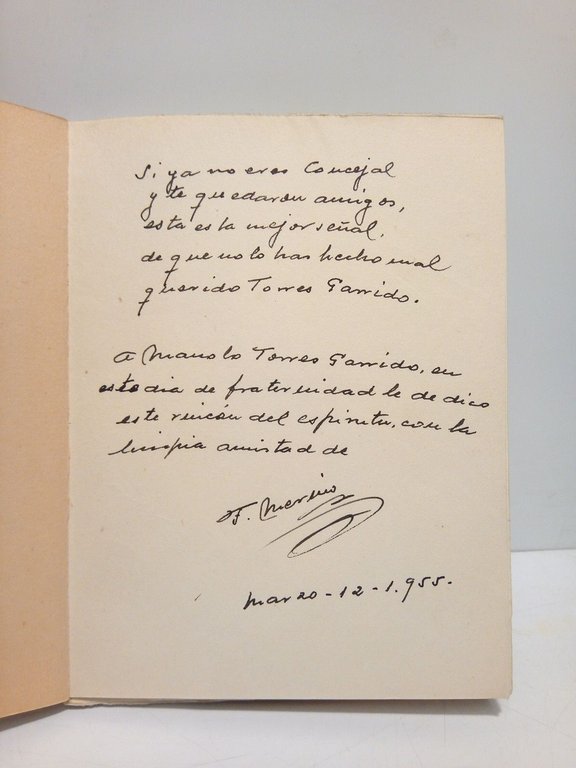 Si ya no eres Concejal
y te quedaron amigos,
esta es la mejor señal,
de que no lo has hecho mal
querido Torres Garrido.
A Manolo Torres Garrido, en
este dia de fraternidad le dedico
este rincón del espiritu, con la
limpia amistad de
F. Merino
Marzo-12-1.955.